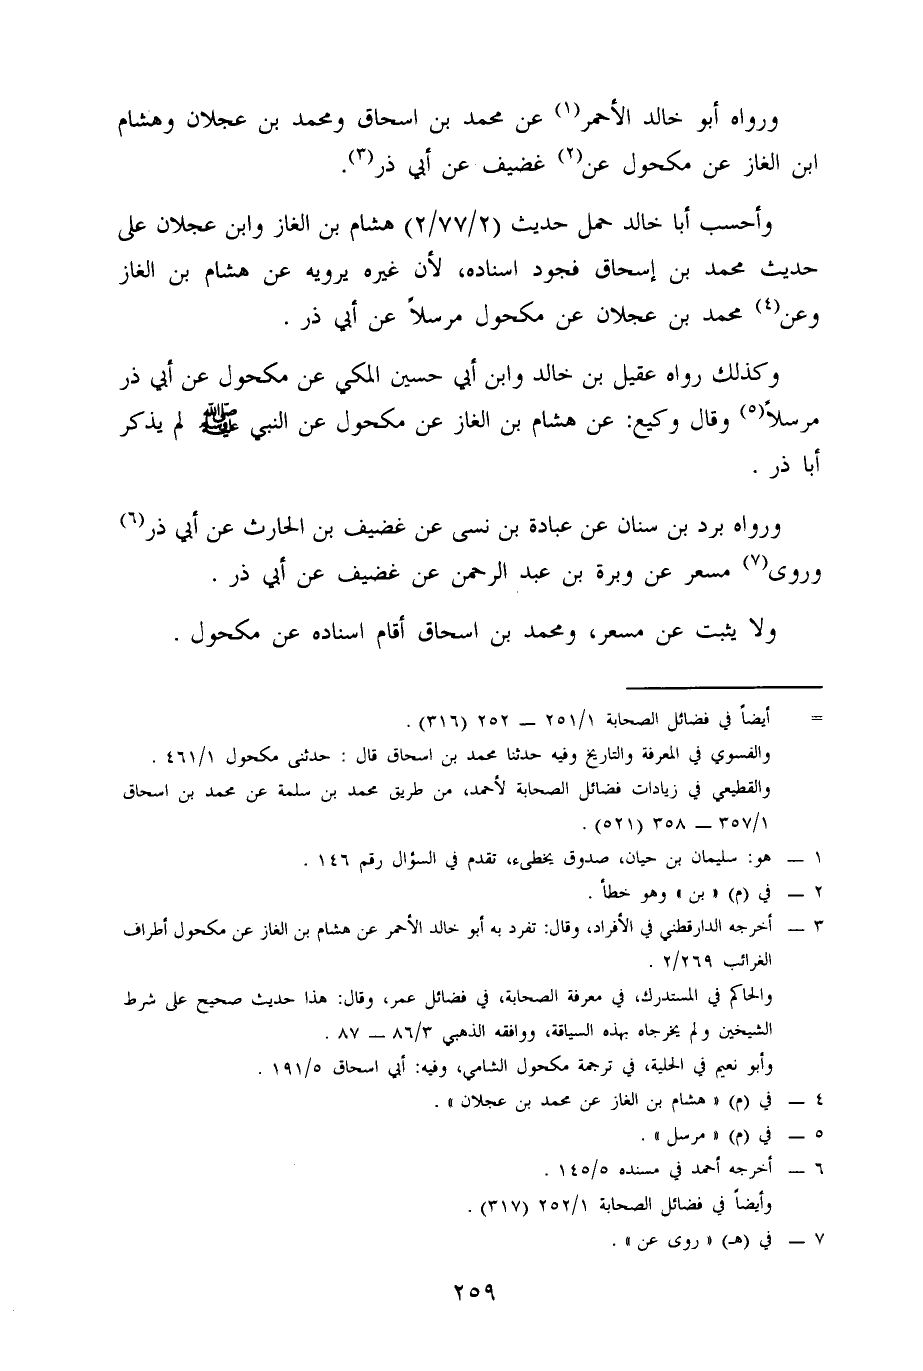 ورواه أبو خالد الأحمر(١) عن محمد بن اسحاق ومحمد بن عجلان وهشام
ابن الغاز عن مكحول عن(٢) غضيف عن أبي ذر(٣).
وأحسب أبا خالد حمل حديث (٢/٧٧/٢) هشام بن الغاز وابن عجلان على
حديث محمد بن إسحاق فجود اسناده، لأن غيره يرويه عن هشام بن الغاز
وعن(٤) محمد بن عجلان عن مكحول مرسلاً عن أبي ذر .
وكذلك رواه عقيل بن خالد وابن أبي حسين المكي عن مكحول عن أبي ذر
مرسلاً(٥) وقال وكيع: عن هشام بن الغاز عن مكحول عن النبي ﷺ لم يذكر
أبا ذر .
ورواه برد بن سنان عن عبادة بن نسى عن غضيف بن الحارث عن أبي ذر(٦)
وروى(٧) مسعر عن وبرة بن عبد الرحمن عن غضيف عن أبي ذر .
ولا يثبت عن مسعر، ومحمد بن اسحاق أقام اسناده عن مكحول .
= أيضاً في فضائل الصحابة ٢٥١/١ — ٢٥٢ (٣١٦) .
والفسوي في المعرفة والتاريخ وفيه حدثنا محمد بن اسحاق قال : حدثنى مكحول ٤٦١/١ .
والقطيعي في زيادات فضائل الصحابة لأحمد، من طريق محمد بن سلمة عن محمد بن اسحاق
٣٥٧/١ — ٣٥٨ (٥٢١) .
١ — هو: سليمان بن حيان، صدوق يخطىء، تقدم في السؤال رقم ١٤٦ .
٢ — في (م) « بن » وهو خطأ .
٣ — أخرجه الدارقطني في الأفراد، وقال: تفرد به أبو خالد الأحمر عن هشام بن الغاز عن مكحول أطراف
الغرائب ٢/٢٦٩ .
والحاكم في المستدرك، في معرفة الصحابة، في فضائل عمر، وقال: هذا حديث صحيح على شرط
الشيخين ولم يخرجاه بهذه السياقة، ووافقه الذهبي ٨٦/٣ — ٨٧ .
وأبو نعيم في الحلية، في ترجمة مكحول الشامي، وفيه: أبي اسحاق ١٩١/٥ .
٤ — في (م) « هشام بن الغاز عن محمد بن عجلان » .
٥ — في (م) « مرسل » .
٦ — أخرجه أحمد في مسنده ١٤٥/٥ .
وأيضاً في فضائل الصحابة ٢٥٢/١ (٣١٧) .
٧ — في (هـ) « روى عن » .
٢٥٩